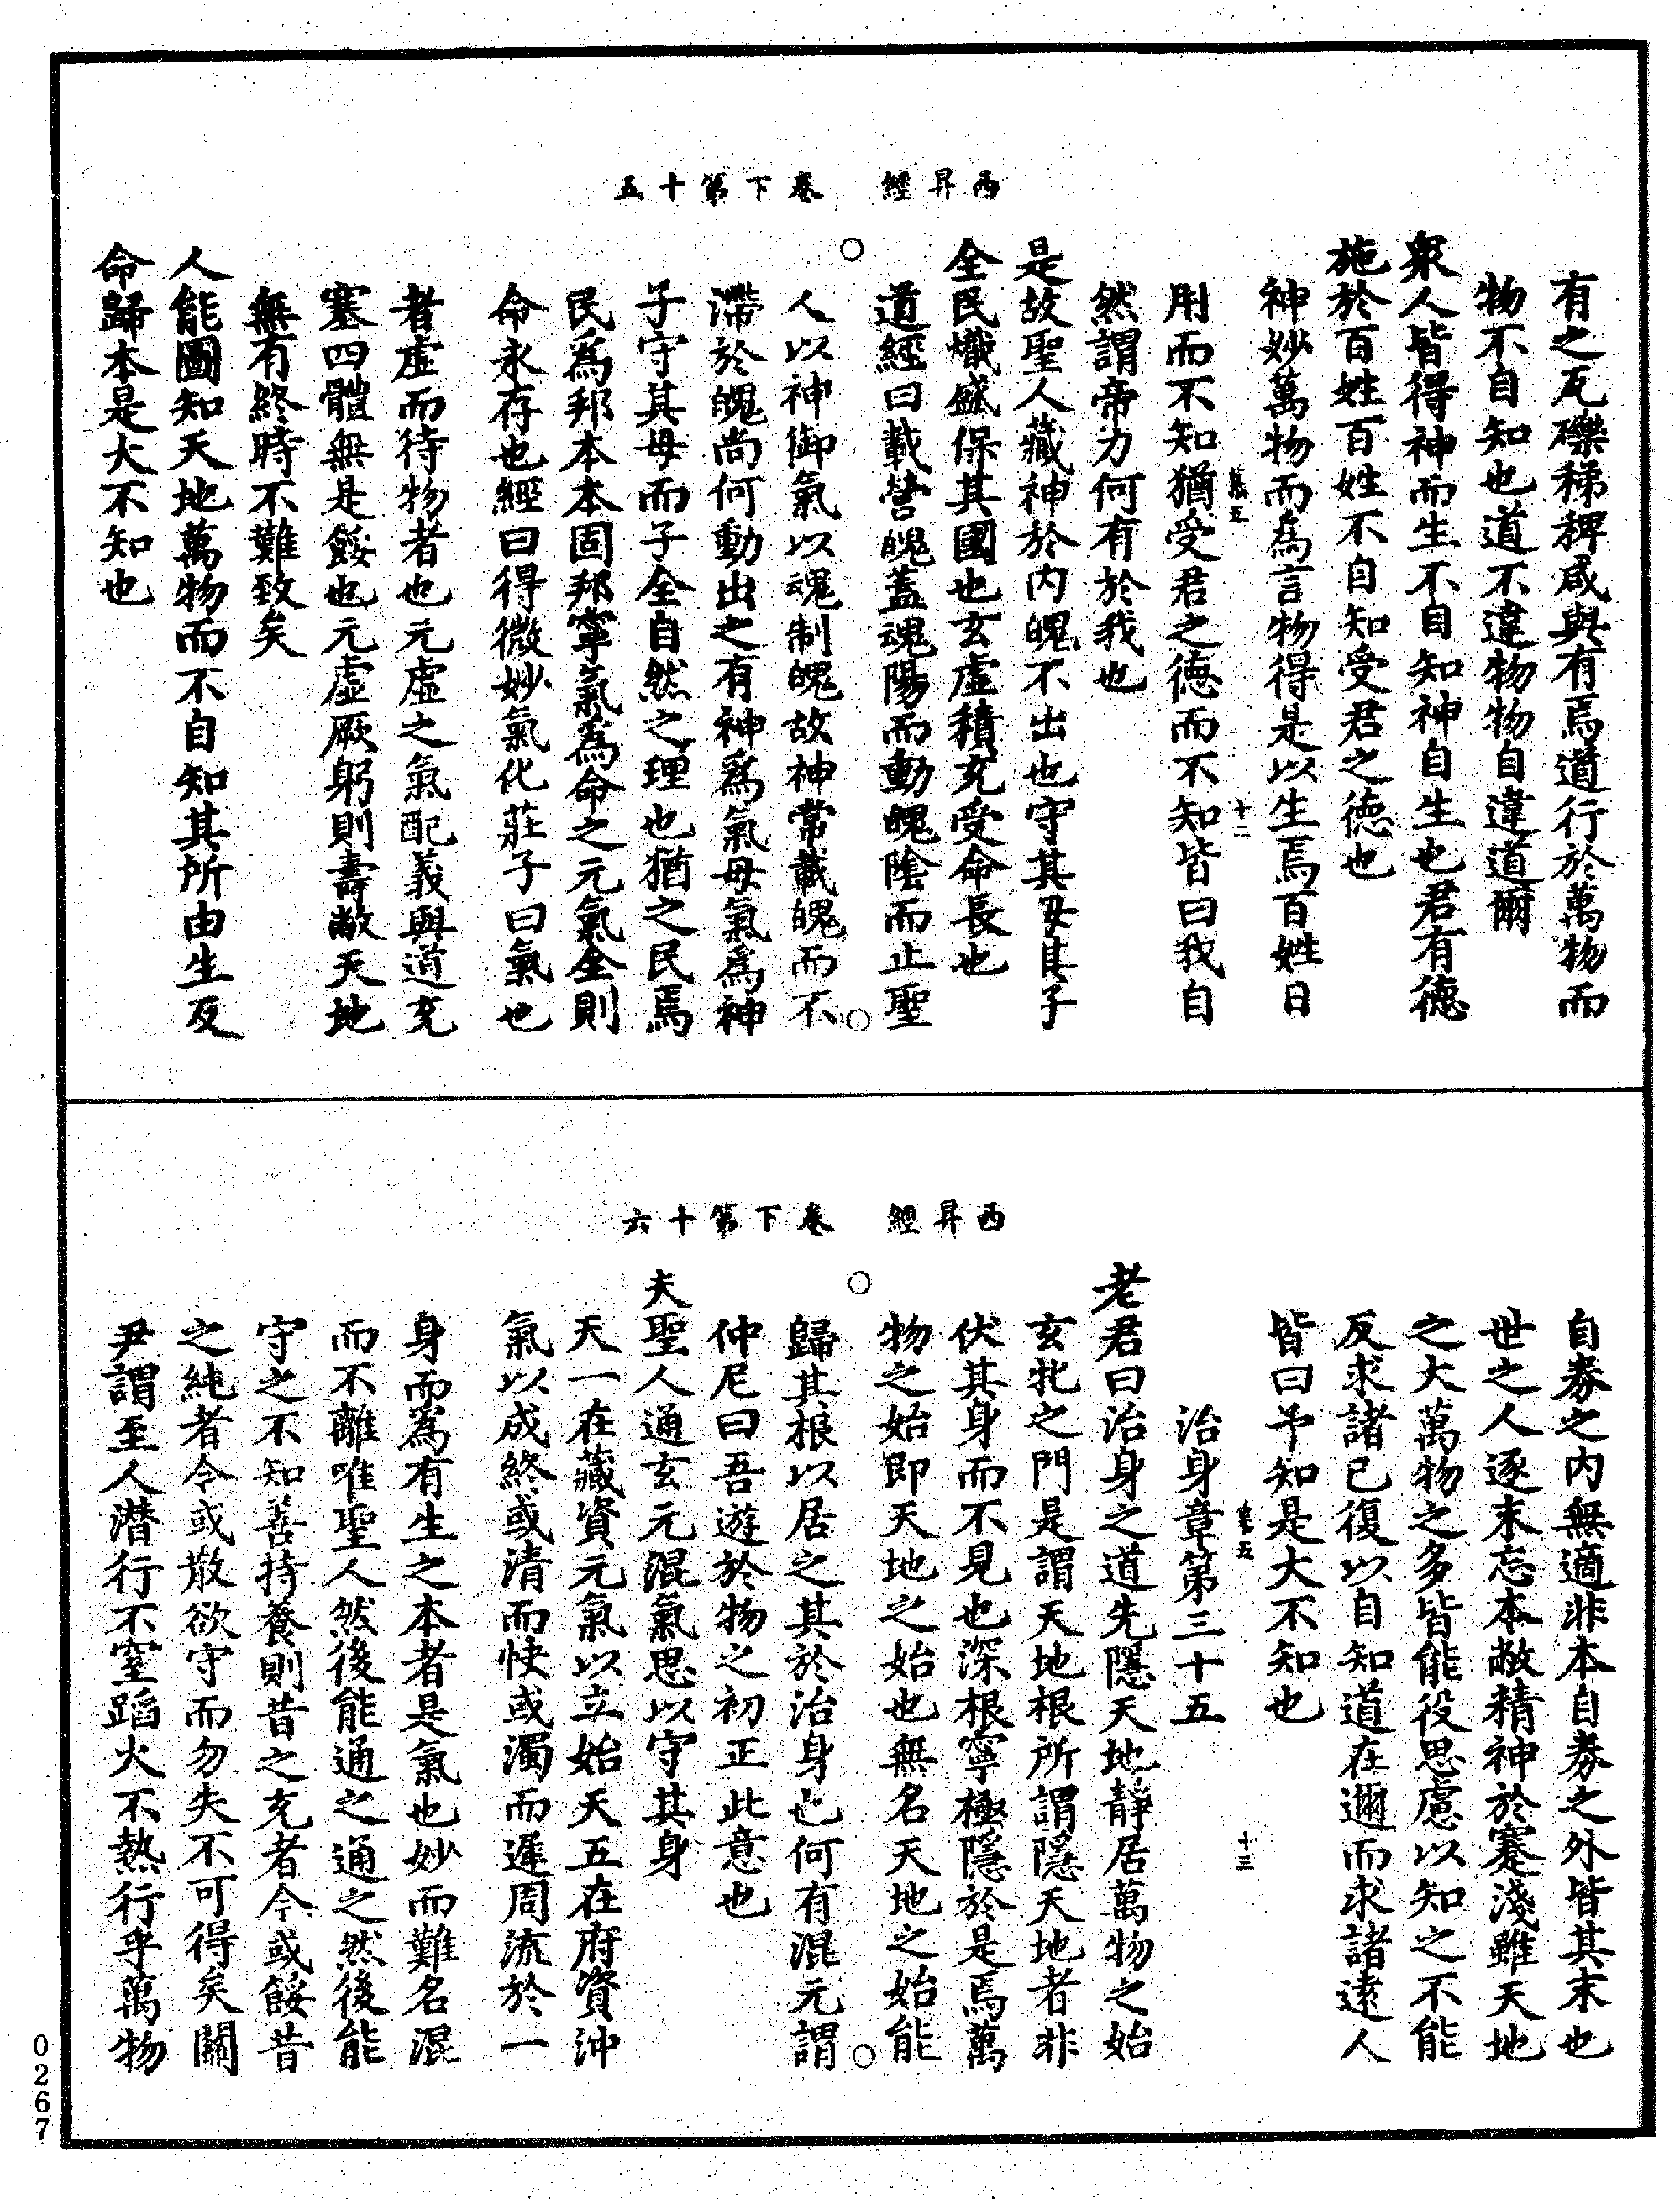 西昇經 卷下第十五
有之瓦礫稊稗咸與有焉道行於萬物而
物不自知也道不違物物自違道爾
眾人皆得神而生不自知神自生也君有德
施於百姓百姓不自知受君之德也
神妙萬物而為言物得是以生焉百姓日
十二
用而不知猶受君之德而不知皆曰我自
然謂帝力何有於我也
是故聖人藏神於內魄不出也守其母其子
全民熾盛保其國也玄虛積充受命長也
道經曰載營魄蓋魂陽而動魄陰而止聖
人以神御氣以魂制魄故神常載魄而不
滯於魄尚何動出之有神為氣母氣為神
子守其母而子全自然之理也猶之民焉
民為邦本本固邦寧氣為命之元氣全則
命永存也經曰得微妙氣化莊子曰氣也
者虛而待物者也元虛之氣配義與道充
塞四體無是餒也元虛厥躬則壽敝天地
無有終時不難致矣
人能圖知天地萬物而不自知其所由生反
命歸本是大不知也
西昇經 卷下第十六
自券之內無適非本自券之外皆其末也
世之人逐末忘本敝精神於蹇淺雖天地
之大萬物之多皆能役思慮以知之不能
反求諸己復以自知道在邇而求諸遠人
皆曰予知是大不知也
十三
治身章第三十五
老君曰治身之道先隱天地靜居萬物之始
玄牝之門是謂天地根所謂隱天地者非
伏其身而不見也深根寧極隱於是焉萬
物之始即天地之始也無名天地之始能
歸其根以居之其於治身也何有混元謂
仲尼曰吾遊於物之初正此意也
夫聖人通玄元混氣思以守其身
天一在藏資元氣以立始天五在府資沖
氣以成終或清而快或濁而遲周流於一
身而為有生之本者是氣也妙而難名混
而不離唯聖人然後能通之通之然後能
守之不知善持養則昔之充者今或餒昔
之純者今或散欲守而勿失不可得矣關
尹謂至人潛行不窒蹈火不熱行乎萬物
0267